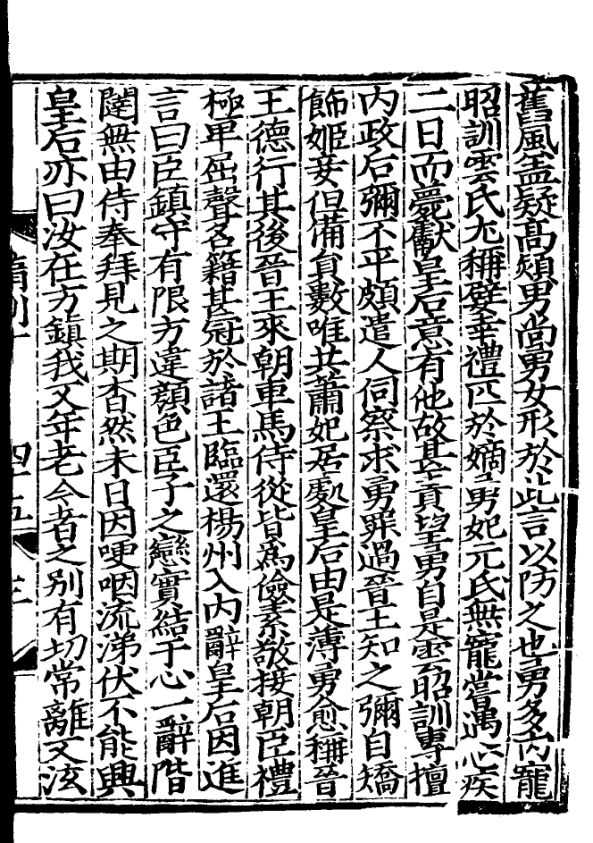 舊風盖疑髙熲男尚勇女形於此言以防之也勇多内寵
昭訓雲氏尤稱嬖幸禮匹於嫡勇妃元氏無寵嘗遇心疾
二日而薨獻皇后意有他故甚責望勇自是雲昭訓專擅
内政后彌不平頗遣人伺察求勇罪過晉王知之彌自矯
飾姬妾但備貟數唯共蕭妃居處皇后由是薄勇愈稱晉
王德行其後晉王來朝車馬侍從皆爲儉素敬接朝臣禮
極卑屈聲名籍甚冠於諸王臨還楊州入内辭皇后因進
言曰臣鎮守有限方違顔色臣子之戀實結于心一辭階
闥無由侍奉拜見之期杳然未日因哽咽流涕伏不能興
皇后亦曰汝在方鎮我又年老今者之别有切常離又泫
隋列十 四十五 三